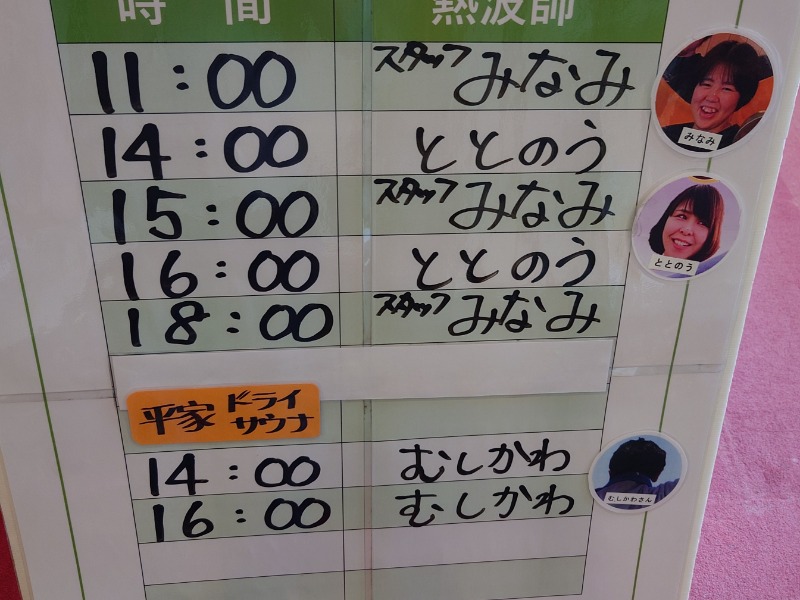 時間 熱波師
11:00 スタッフ みなみ
みなみ
14:00 ととのう
15:00 スタッフ みなみ
ととのう
16:00 ととのう
18:00 スタッフ みなみ
平家 ドライサウナ
14:00 むしかわ
むしかわさん
16:00 むしかわ